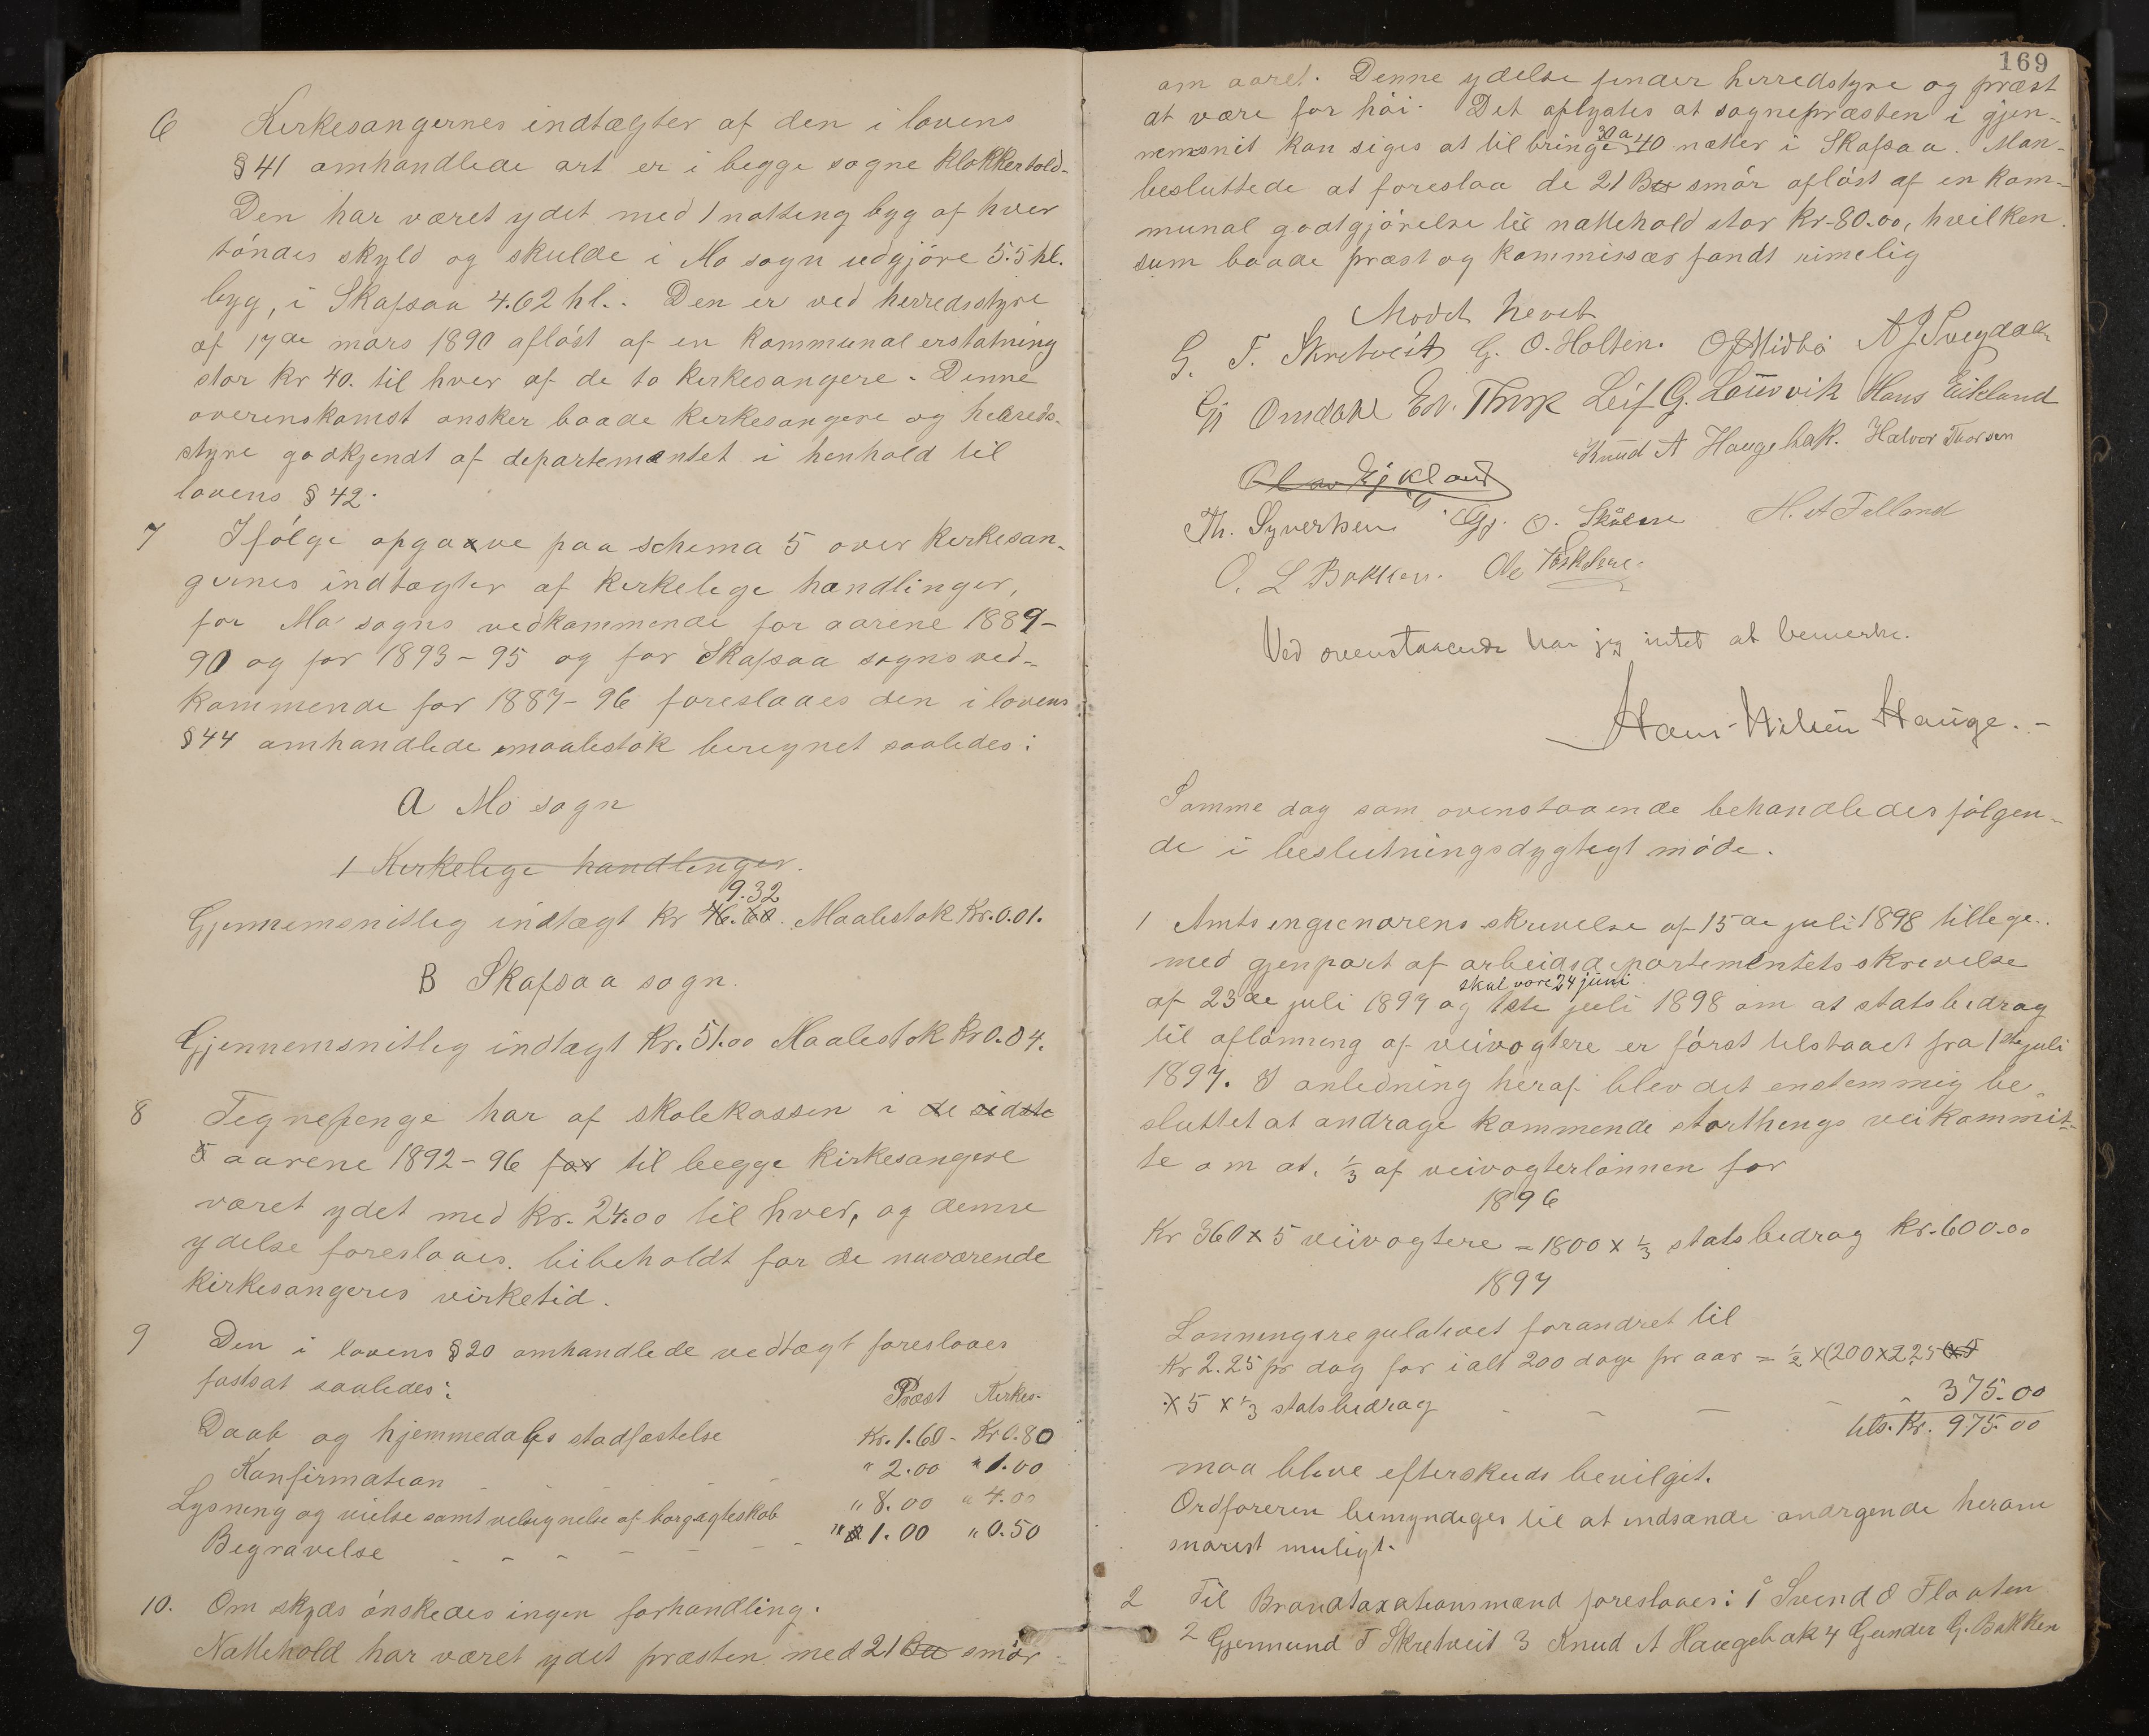 6 Kirkesangernes indtægter af den i lovens
§ 41 omhandlede art er i begge sogne klokkertold.
Den har været ydet med 1 notting byg af hver
töndes skyld og skulde i Mo sogn udgjöre 5.5 hl.
byg, i Skafsaa 4.62 hl.. Den er ved herredsstyre
af 17de mars 1890 aflöst af en kommunal erstatning
stor kr 40. til hver af de to kirkesangere. Denne
overenskomst ønsker baade kirkesangere og herreds-
styre godkjendt af departementet i henhold til
lovens § 42.
7 Ifölge opgave paa schema 5 over kirkesan-
gernes indtægter af kirkelige handlinger,
for Mo sogns vedkommende for aarene 1889-
90 og for 1893-95 og for Skafsaa sogns ved-
kommende for 1887-96 foreslaaes den i lovens
§ 44 omhandlede maalestok beregnet saaledes:
A Mo sogn
1 Kirkelige handlinger.
9.32
Gjennemsnitlig indtægt kr 46.60. Maalestok Kr. 0.01.
B Skafsaa sogn.
Gjennemsnitlig indtægt Kr. 51.00 Maalestok Kr 0.04.
8 Tegnepenge har af skolekassen i de sidste
5 aarene 1892-96 for til begge kirkesangere
været ydet med kr. 24.00 til hver, og denne
ydelse foreslaaes bibeholdt for de nuværende
kirkesangeres virketid.
9 Den i lovens § 20 omhandlede vedtægt foreslaaes
fastsat saaledes:
Præst Kirkes.
Daab og hjemmedaabs stadfæstelse Kr. 1.60 - Kr 0.80
Konfirmation " 2.00 " 1.00
Lysning og vielse samt velsignelse af borg. ægteskab " 8.00 " 4.00
Begravelse " 1.00 " 0.50
10. Om skyds ónskedes ingen forhandling.
Nattehold har været ydet præsten med 21 Bu smör
169
om aaret. Denne ydelse finder herredstyre og præst
at være for höi. Det oplystes at sognepræsten i gjen-
30 a
nemsnit kan siges at tilbringe 40 nætter i Skafsaa. Man
besluttede at foreslaa de 21 Bu smör aflöst af en kom-
munal godtgjörelse til nattehold stor Kr. 80.00, hvilken
sum baade præst og kommissær fandt rimelig
Mödet hevet
G. T. Skretveit G. O. Holten. O J Midbö A J Svegdal
Gj Omdahl Edv. Thorp Leif G. Lauvvik Hans Eikland
Knud A Haugebak. Halvor Thorsen
Olav Ejkland
Th. Syvertsen Gj. O. Skålne H. A Felland
O. L Bakken. Ole
Ved ovenstaaende har jeg intet at bemerke.
Hans Nilsen Hauge. -
Samme dag som ovenstaaende behandledes følgen-
de i beslutningsdygtigt möde.
1 Amts ingienørens skrivelse af 15de juli 1898 tillige
med gjenpart af arbeidsdepartementets skrivelse
skal være 24 juni
af 23de juli 1897 og 1ste juli 1898 om at statsbidrag
til aflönning af veivogtere er först tilstaaet fra 1ste juli
1897. I anledning heraf blev det enstemmig be-
sluttet at andrage kommende storthings veikommit-
te om at 1/3 af veivogterlönnen for
1896
Kr 360 x 5 veivogtere = 1800 x 1/3 statsbidrag Kr. 600.00
1897
Lønningsregulativet forandret til
Kr 2.25 pr dag for ialt 200 dage pr aar = 1/2 x (200 x 2.25 x 5
x 5 x 1/3 statsbidrag - - - - " 375.00
tils. Kr. 975.00
maa blive efterskuds bevilget.
Ordføreren bemyndiges til at indsende andragende herom
snarest muligt.
2 Til Brandtaxationsmænd foreslaaes: 1 Svend O Flaaten
2 Gjermund T Skretveit 3 Knud A Haugebak 4 Gunder G. Bakken